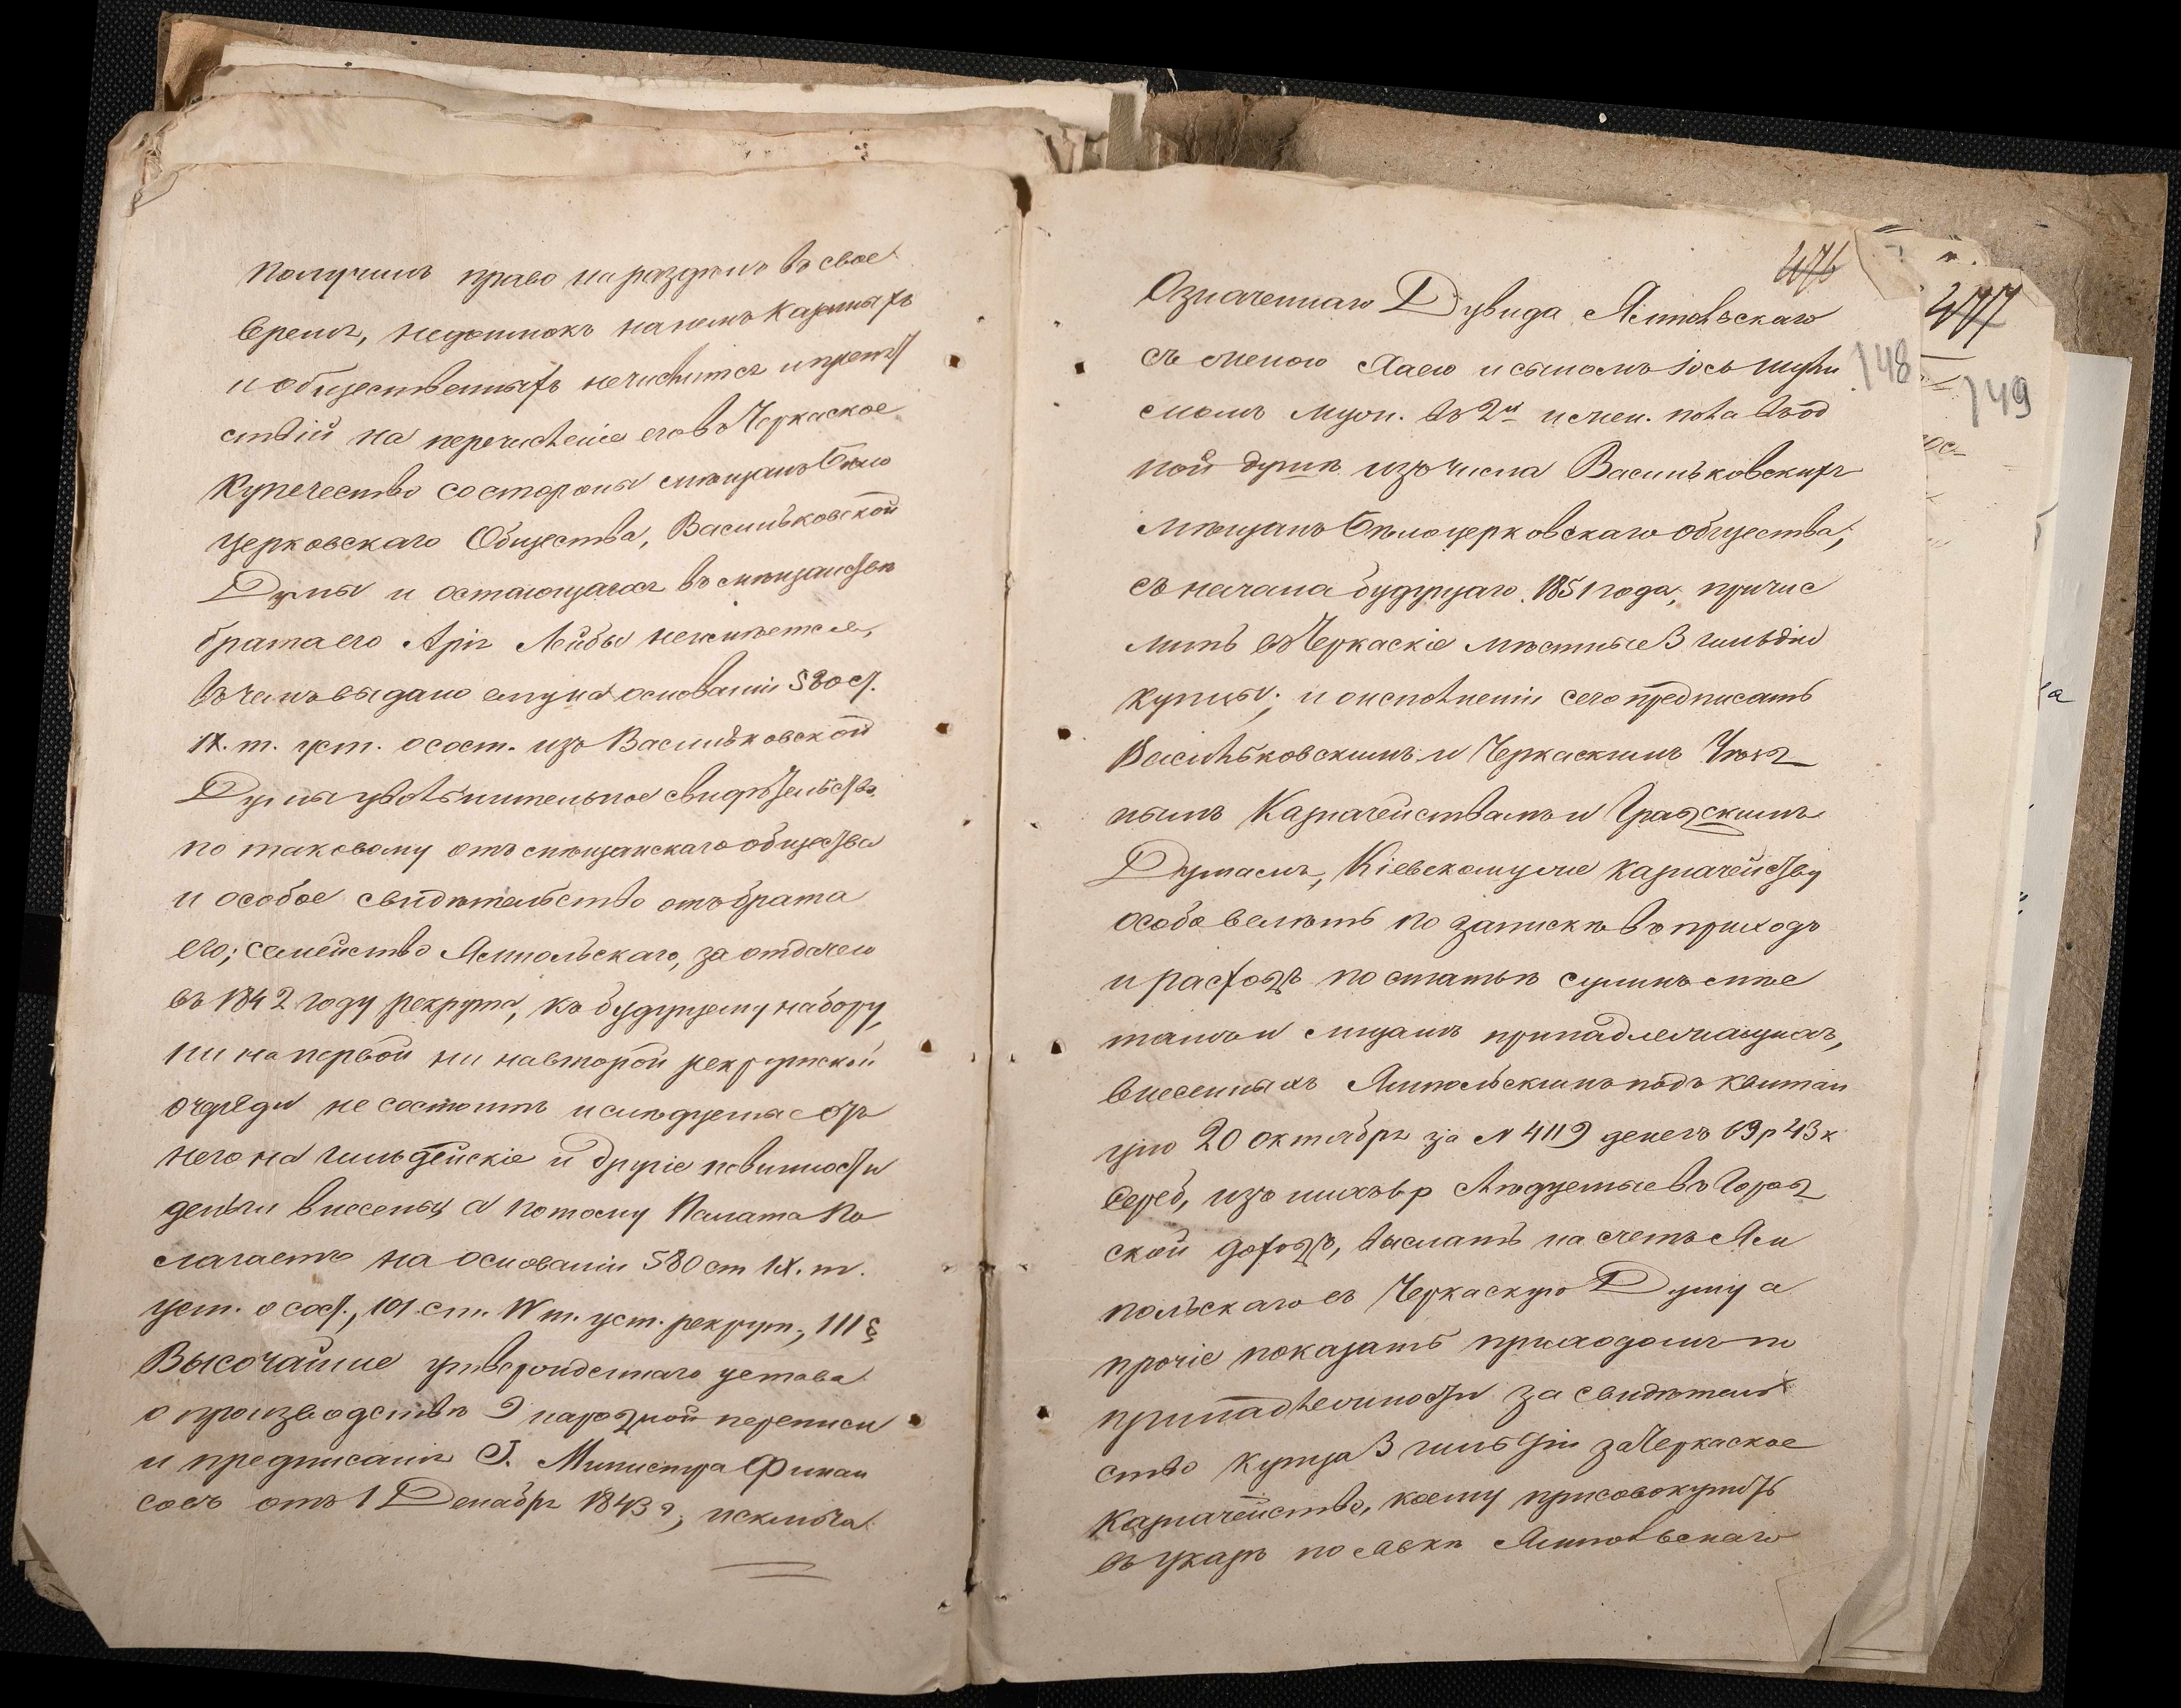 получилъ право на раздѣлъ въ свое
время, недоимокъ на немъ казеныхъ
и общественныхъ нечислится и препят
ствій на перечисленіе его въ Черкаское
купечество со стороны мѣщанъ Бѣло
церковскаго Общества, Васильковской
Думы и остающагося въ мѣщанствѣ
брата его Арія Лейбы неимѣется,
въ чемъ выдано ему на основаніи 580 ст.
IX. т. уст. о сост. изъ Васильковской
Думы увольнительное свидѣтельство
по таковому отъ мѣщанскаго общества
и особое свидѣтельство отъ брата
его; семейство Ямпольскаго, за отдачею
въ 1842 году рекрута, къ будущему набору,
ни на первой ни на второй рекрутской
очереди не состоитъ и слѣдуемыя съ
него на гильдейскіе и другіе повинности
деньги внесены, а потому Палата по
лагаетъ на основаніи 580 ст IX. т.
уст. о сост., 101 ст. IV т. уст. рекрут., 111 §
Высочайше утвержденнаго устава
о производствѣ 9 народной переписи
и предписанія Г. Министра Финан
совъ отъ 1 Декабря 1843 г, исключа
476
477
148
149
Означеннаго Дувида Ямпольскаго
съ женою Хаею и сыномъ Іось
муж. въ 2й и жен. пола въ од
ной душѣ изъ числа Васильковскихъ
мѣщанъ Бѣлоцерковскаго общества;
съ начала будущаго 1851 года, причис
лить въ Черкаскіе мѣстные 3 гильдіи
купцы; и о исполненіи сего предписать
Васильковскимъ и Черкаскимъ Уѣзд
нымъ Казначействамъ и Градскимъ
Думамъ, Кіевскому же казначейству
особо велѣть по запискѣ въ приходъ
и расходъ по статьѣ суммъ мѣс
тамъ и лицамъ принадлежащихъ,
внесенныхъ Ямпольскимъ подъ квитан
цію 20 октября за N 4119 денегъ 69 р 43 к
сереб, изъ нихъ р слѣдуемые въ Город
ской доходъ, выслать на счетъ Ям
польскаго въ Черкаскую Думу а
прочіе показать приходомъ по
принадлежности за свидѣтель
ство купца 3 гильдіи за Черкаское
Казначейство, коему присовокупить
въ указѣ по явкѣ Ямпольскаго